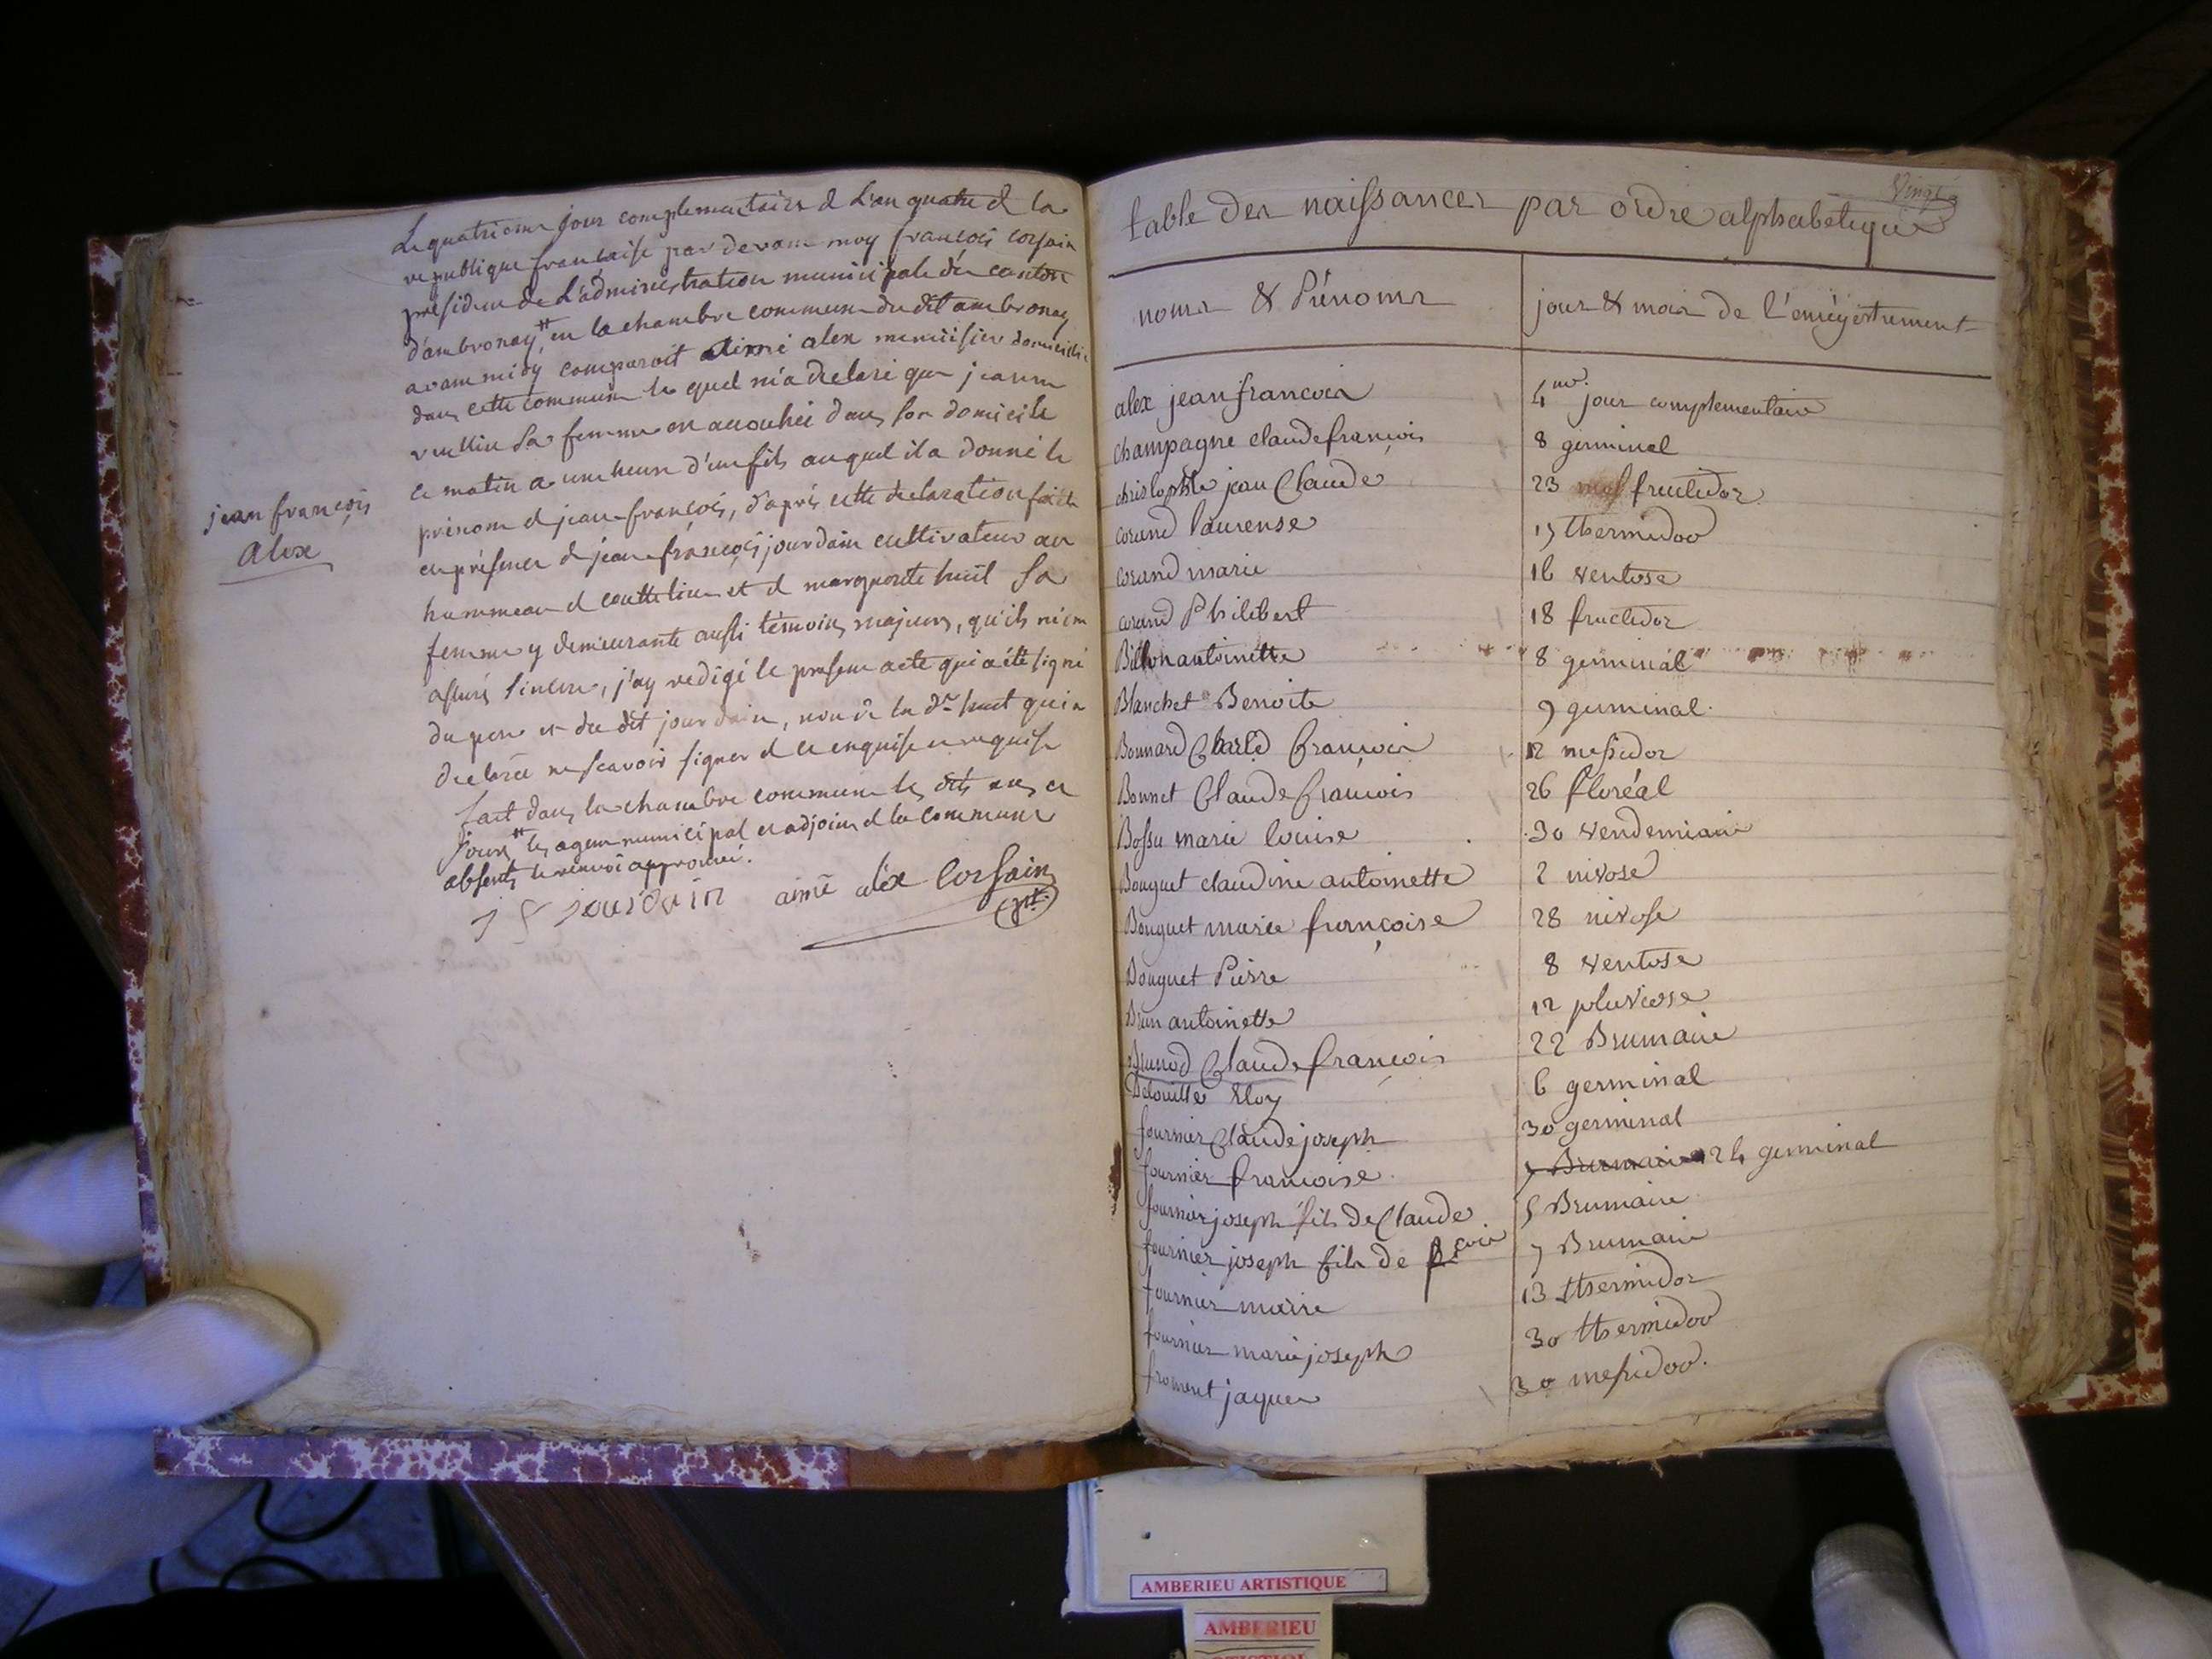 Le quatrieme jour complementaire d L'an quatre d la
republique francaise par devant moy francois corsain
président de L'administration municipale du canton
d'ambronay, en la chambre commune du dit ambronay
avant midy comparoit Aimé alex menuisier domicilié
dans cette commune le quel m'a declaré que jeanne
vullin sa femme est accouchée dans son domicile
ce matin a une heure d'un fils auquel il a donné le
prénom d jean-francois, d'aprés cette declaration faite
en présence d jean-françois jourdain cultivateur au
hammeau d couttelieu et d marguerite huit sa
femme y demeurante aussi témoins majeurs, qu'ils m'ont
assuré sincere, j'ay redigé le present acte qui a été signé
du pere et du dit jourdain, non de la dte huit qui a
declarée ne scavoir signer d ce enquise et requise
fait dans la chambre commune les dits an et
jours les agent municipal et adjoint d la commune
absents le renvoi approuvé.
j f jourdain aimé alex Corsain
pt.
jean françois
alex
Vingt
table des naissances par ordre alphabetique
noms & Prénoms jour & mois de l'enregistrement
alex jean francois 4me. jour complementaire
champagne claude françois 8 germinal
christophle jean Claude 23 fructidor
corand laurense 17 thermidor
corand marie 16 ventose
corand Philibert 18 fructidor
Billon antoinette 8 germinal
Blanchet Benoite 9 germinal.
Bonnard Charle François 12 messidor
Bonnet Claude François 26 floréal
Bossu marie louise 30 vendemiaire
Bouguet claudine antoinette 2 nivose
Bouguet marie françoise 28 nivose
Bouguet Pierre 8 ventose
Brun antoinette 12 pluviose
Brunod Claude françois 22 Brumaire
Eloy 6 germinal
fournier Claude joseph 30 germinal
fournier francoise 7 Brumaire 24 germinal
fournier joseph fils de Claude 5 Brumaire
fournier joseph fils de frcois 7 Brumaire
fournier marie 13 thermidor
fournier marie joseph 30 thermidor
froment jaques 30 messidor.
AMBERIEU ARTISTIQUE
AMBERIEU